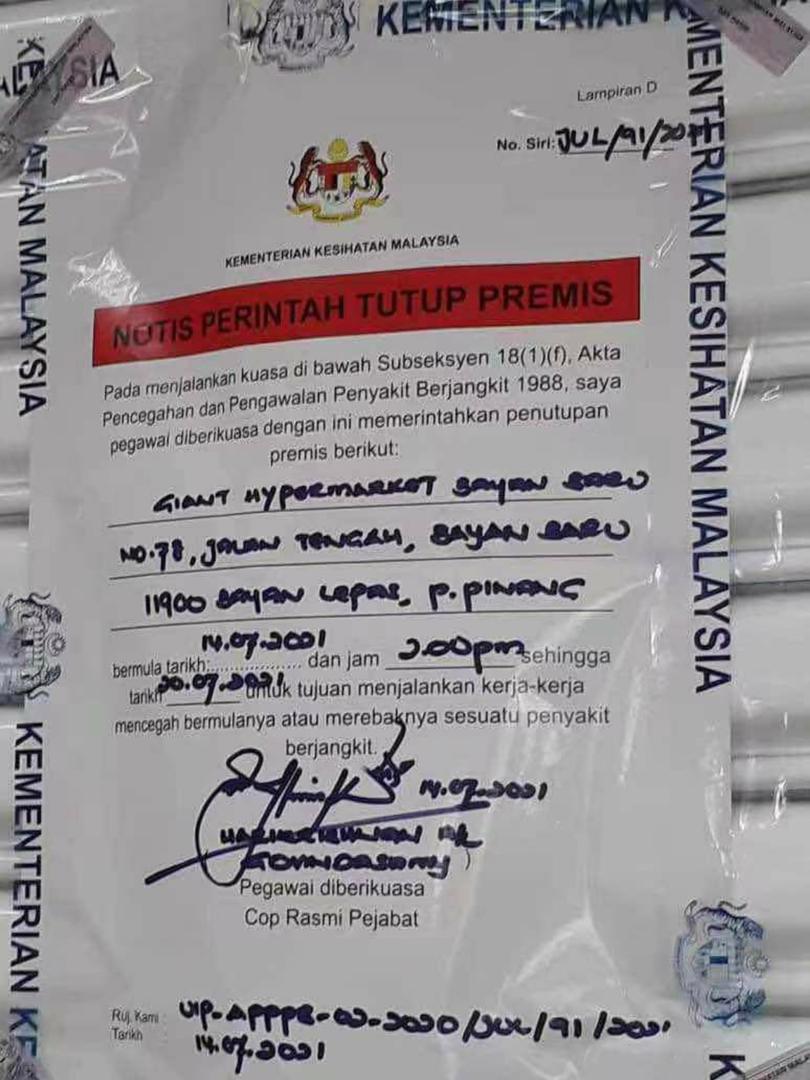 KEMENTERIAN
Lampiran D
No. Siri: JUL/91/2021
KEMENTERIAN KESIHATAN MALAYSIA
NOTIS PERINTAH TUTUP PREMIS
Pada menjalankan kuasa di bawah Subseksyen 18(1)(f), Akta
Pencegahan dan Pengawalan Penyakit Berjangkit 1988, saya
pegawai diberikuasa dengan ini memerintahkan penutupan
premis berikut:
GIANT HYPERMARKET BAYAN BARU
NO.78, JALAN TENGAH, BAYAN BARU
11900 BAYAN LEPAS, P.PINANG
bermula tarikh: 14.07.2021 dan jam 2.00pm sehingga
tarikh 20.07.2021 untuk tujuan menjalankan kerja-kerja
mencegah bermulanya atau merebaknya sesuatu penyakit
berjangkit.
14.07.2021
GOVINDASAMY)
Pegawai diberikuasa
Cop Rasmi Pejabat
Ruj. Kami: UIP-APPPB-02-2020/JUL/91/2021
Tarikh 14.07.2021
ATAN MALAYSIA
KEMENTERIAN KE
MENTERIAN KESIHATAN MALAYSIA